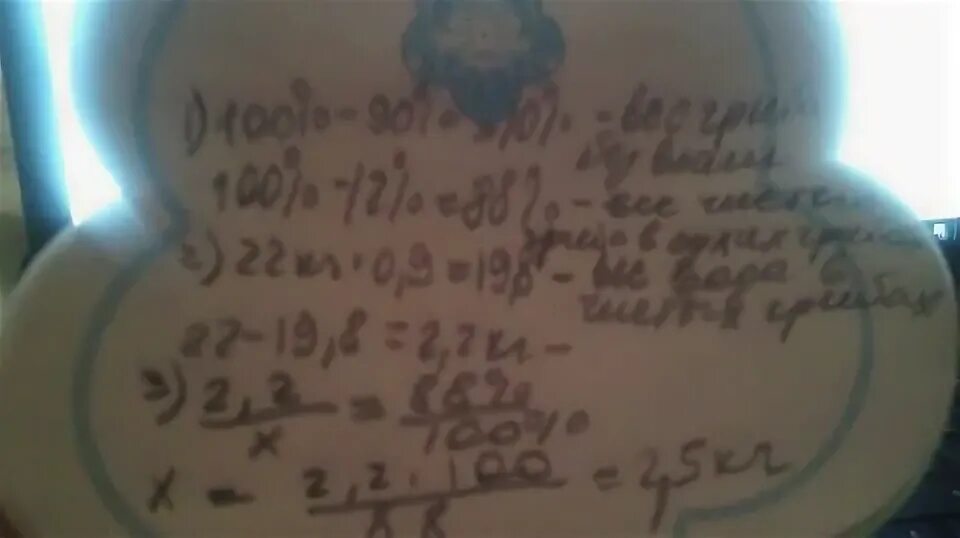 1) 100% - 90% = 10% - вес
без воды
100% - 12% = 88% - вес чистых
грибов в сухих грибах
2) 22кг · 0,9 = 19,8 - вес воды в
чистых грибах
22 - 19,8 = 2,2кг -
3) 2,2/x = 88%/100%
x = 2,2 · 100/88 = 2,5кг